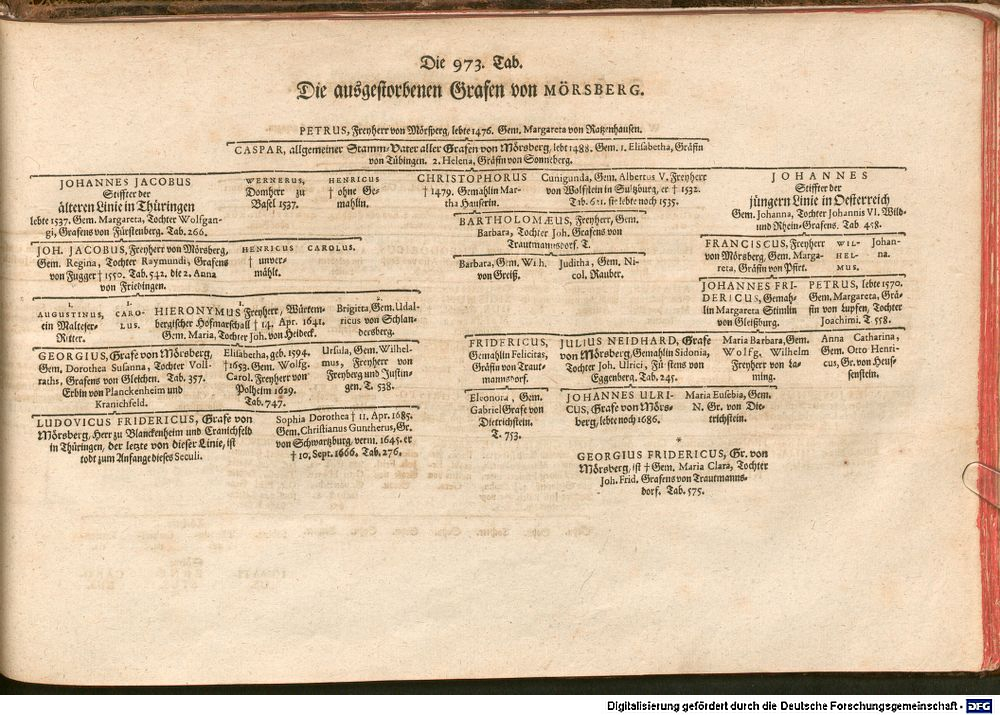 Die 973. Tab.
Die ausgestorbenen Grafen von MÖRSBERG.
PETRUS, Freyherr von Mörsperg, lebte 1476. Gem. Margareta von Ratzenhausen.
CASPAR, allgemeiner Stamm-Vater aller Grafen von Mörsberg, lebt 1488. Gem. 1. Elisabetha, Gräfin
von Tübingen. 2. Helena, Gräfin von Sonneberg.
JOHANNES JACOBUS
Stiffter der
älteren Linie in Thüringen
lebte 1537. Gem. Margareta, Tochter Wolfgan-
gi, Grafens von Fürstenberg. Tab. 266.
WERNERUS,
Domherr zu
Basel 1537.
HENRICUS
† ohne Ge-
mahlin.
CHRISTOPHORUS
† 1479. Gemahlin Mar-
tha Hauserin.
Cunigunda, Gem. Albertus V. Freyherr
von Wolfstein in Sultzburg, er † 1532.
Tab. 621. sie lebte noch 1535.
JOHANNES
Stiffter der
jüngern Linie in Oesterreich
Gem. Johanna, Tochter Johannis VI. Wild-
und Rhein-Grafens. Tab 458.
BARTHOLOMÆUS, Freyherr, Gem.
Barbara, Tochter Joh. Grafens von
Trautmannsdorf. T.
JOH. JACOBUS, Freyherr von Mörsberg,
Gem. Regina, Tochter Raymundi, Grafens
von Fugger † 1550. Tab. 542. die 2. Anna
von Friedingen.
HENRICUS
† unver-
mählt.
CAROLUS.
Barbara, Gem. Wilh.
von Greiß.
Juditha, Gem. Ni-
col. Rauber.
FRANCISCUS, Freyherr
von Mörsberg, Gem. Marga-
reta, Gräfin von Pfirt.
WIL-
HEL-
MUS.
Johan-
na.
JOHANNES FRI-
DERICUS, Gemah-
lin Margareta Stimlin
von Gleißburg.
PETRUS, lebte 1570.
Gem. Margareta, Grä-
fin von Lupfen, Tochter
Joachimi. T. 558.
1.
AUGUSTINUS,
ein Malteser-
Ritter.
1.
CARO-
LUS.
HIERONYMUS Freyherr, Würtem-
bergischer Hofmarschall † 14. Apr. 1641.
Gem. Maria, Tochter Joh. von Heideck.
2.
Brigitta, Gem. Udal-
ricus von Schlan-
dersberg.
GEORGIUS, Grafe von Mörsberg,
Gem. Dorothea Susanna, Tochter Voll-
raths, Grafens von Gleichen. Tab. 357.
Erbin von Planckenheim und
Kranichfeld.
Elisabetha, geb. 1594.
† 1653. Gem. Wolfg.
Carol. Freyherr von
Polheim 1629.
Tab. 747.
Ursula, Gem. Wilhel-
mus, Freyherr von
Freyberg und Justin-
gen. T. 538.
FRIDERICUS,
Gemahlin Felicitas,
Gräfin von Traut-
mannsdorf.
JULIUS NEIDHARD, Grafe
von Mörsberg, Gemahlin Sidonia,
Tochter Joh. Ulrici, Fürstens von
Eggenberg. Tab. 245.
Maria Barbara, Gem.
Wolfg. Wilhelm
Freyherr von La-
ming.
Anna Catharina,
Gem. Otto Henri-
cus, Gr. von Heuss-
senstein.
LUDOVICUS FRIDERICUS, Grafe von
Mörsberg, Herr zu Blanckenheim und Cranichfeld
in Thüringen, der letzte von dieser Linie, ist
todt zum Anfange dieses Seculi.
Sophia Dorothea † 11. Apr. 1685.
Gem. Christianus Guntherus, Gr.
von Schwartzburg, verm. 1645. er
† 10. Sept. 1666. Tab. 276.
Eleonora, Gem.
Gabriel Grafe von
Dietrichstein.
T. 753.
JOHANNES ULRI-
CUS, Grafe von Mörs-
berg, lebte noch 1686.
Maria Eusebia, Gem.
N. Gr. von Die-
trichstein.
*
GEORGIUS FRIDERICUS, Gr. von
Mörsberg, ist † Gem. Maria Clara, Tochter
Joh. Frid. Grafens von Trautmanns-
dorf. Tab. 575.
Digitalisierung gefördert durch die Deutsche Forschungsgemeinschaft - DFG